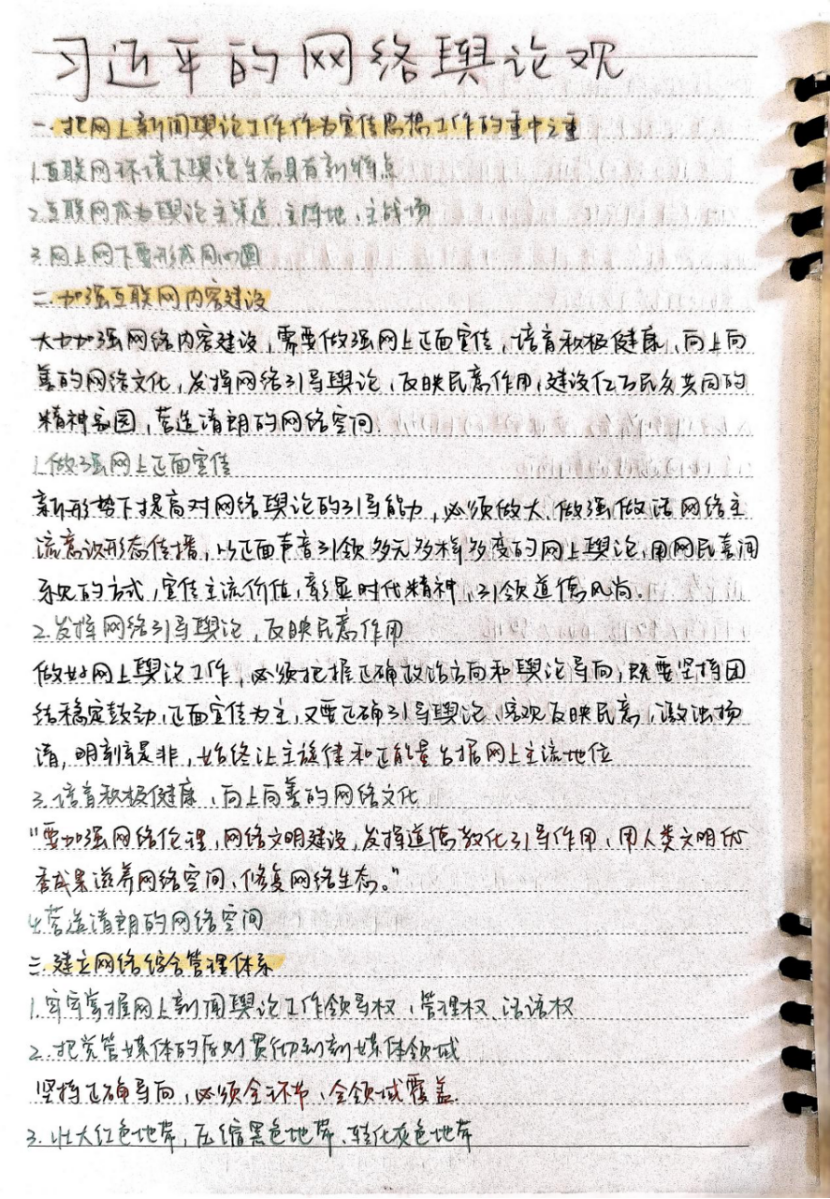 习近平的网络舆论观
一.把网上新闻舆论工作作为宣传思想工作的重中之重
1.互联网环境下舆论生态具有新特点
2.互联网成为舆论主渠道、主阵地、主战场
3.网上网下要形成同心圆
二.加强互联网内容建设
大力加强网络内容建设,需要做强网上正面宣传,培育积极健康、向上向
善的网络文化,发挥网络引导舆论、反映民意作用,建设亿万民众共同的
精神家园,营造清朗的网络空间.
1.做强网上正面宣传
新形势下提高对网络舆论的引导能力,必须做大、做强做活网络主
流意识形态传播,以正面声音引领多元多样多变的网上舆论,用网民喜闻
乐见的方式,宣传主流价值,彰显时代精神,引领道德风尚.
2.发挥网络引导舆论,反映民意作用
做好网上舆论工作,必须把握正确政治方向和舆论导向,既要坚持团
结稳定鼓劲,正面宣传为主,又要正确引导舆论、客观反映民意,激浊扬
清,明辨是非,始终让主旋律和正能量占据网上主流地位
3.培育积极健康、向上向善的网络文化
"要加强网络伦理、网络文明建设,发挥道德教化引导作用,用人类文明优
秀成果滋养网络空间、修复网络生态。"
4.营造清朗的网络空间
三.建立网络综合管理体系
1.牢牢掌握网上新闻舆论工作领导权、管理权、话语权
2.把党管媒体的原则贯彻到新媒体领域
坚持正确导向,必须全环节、全领域覆盖.
3.壮大红色地带,压缩黑色地带、转化灰色地带